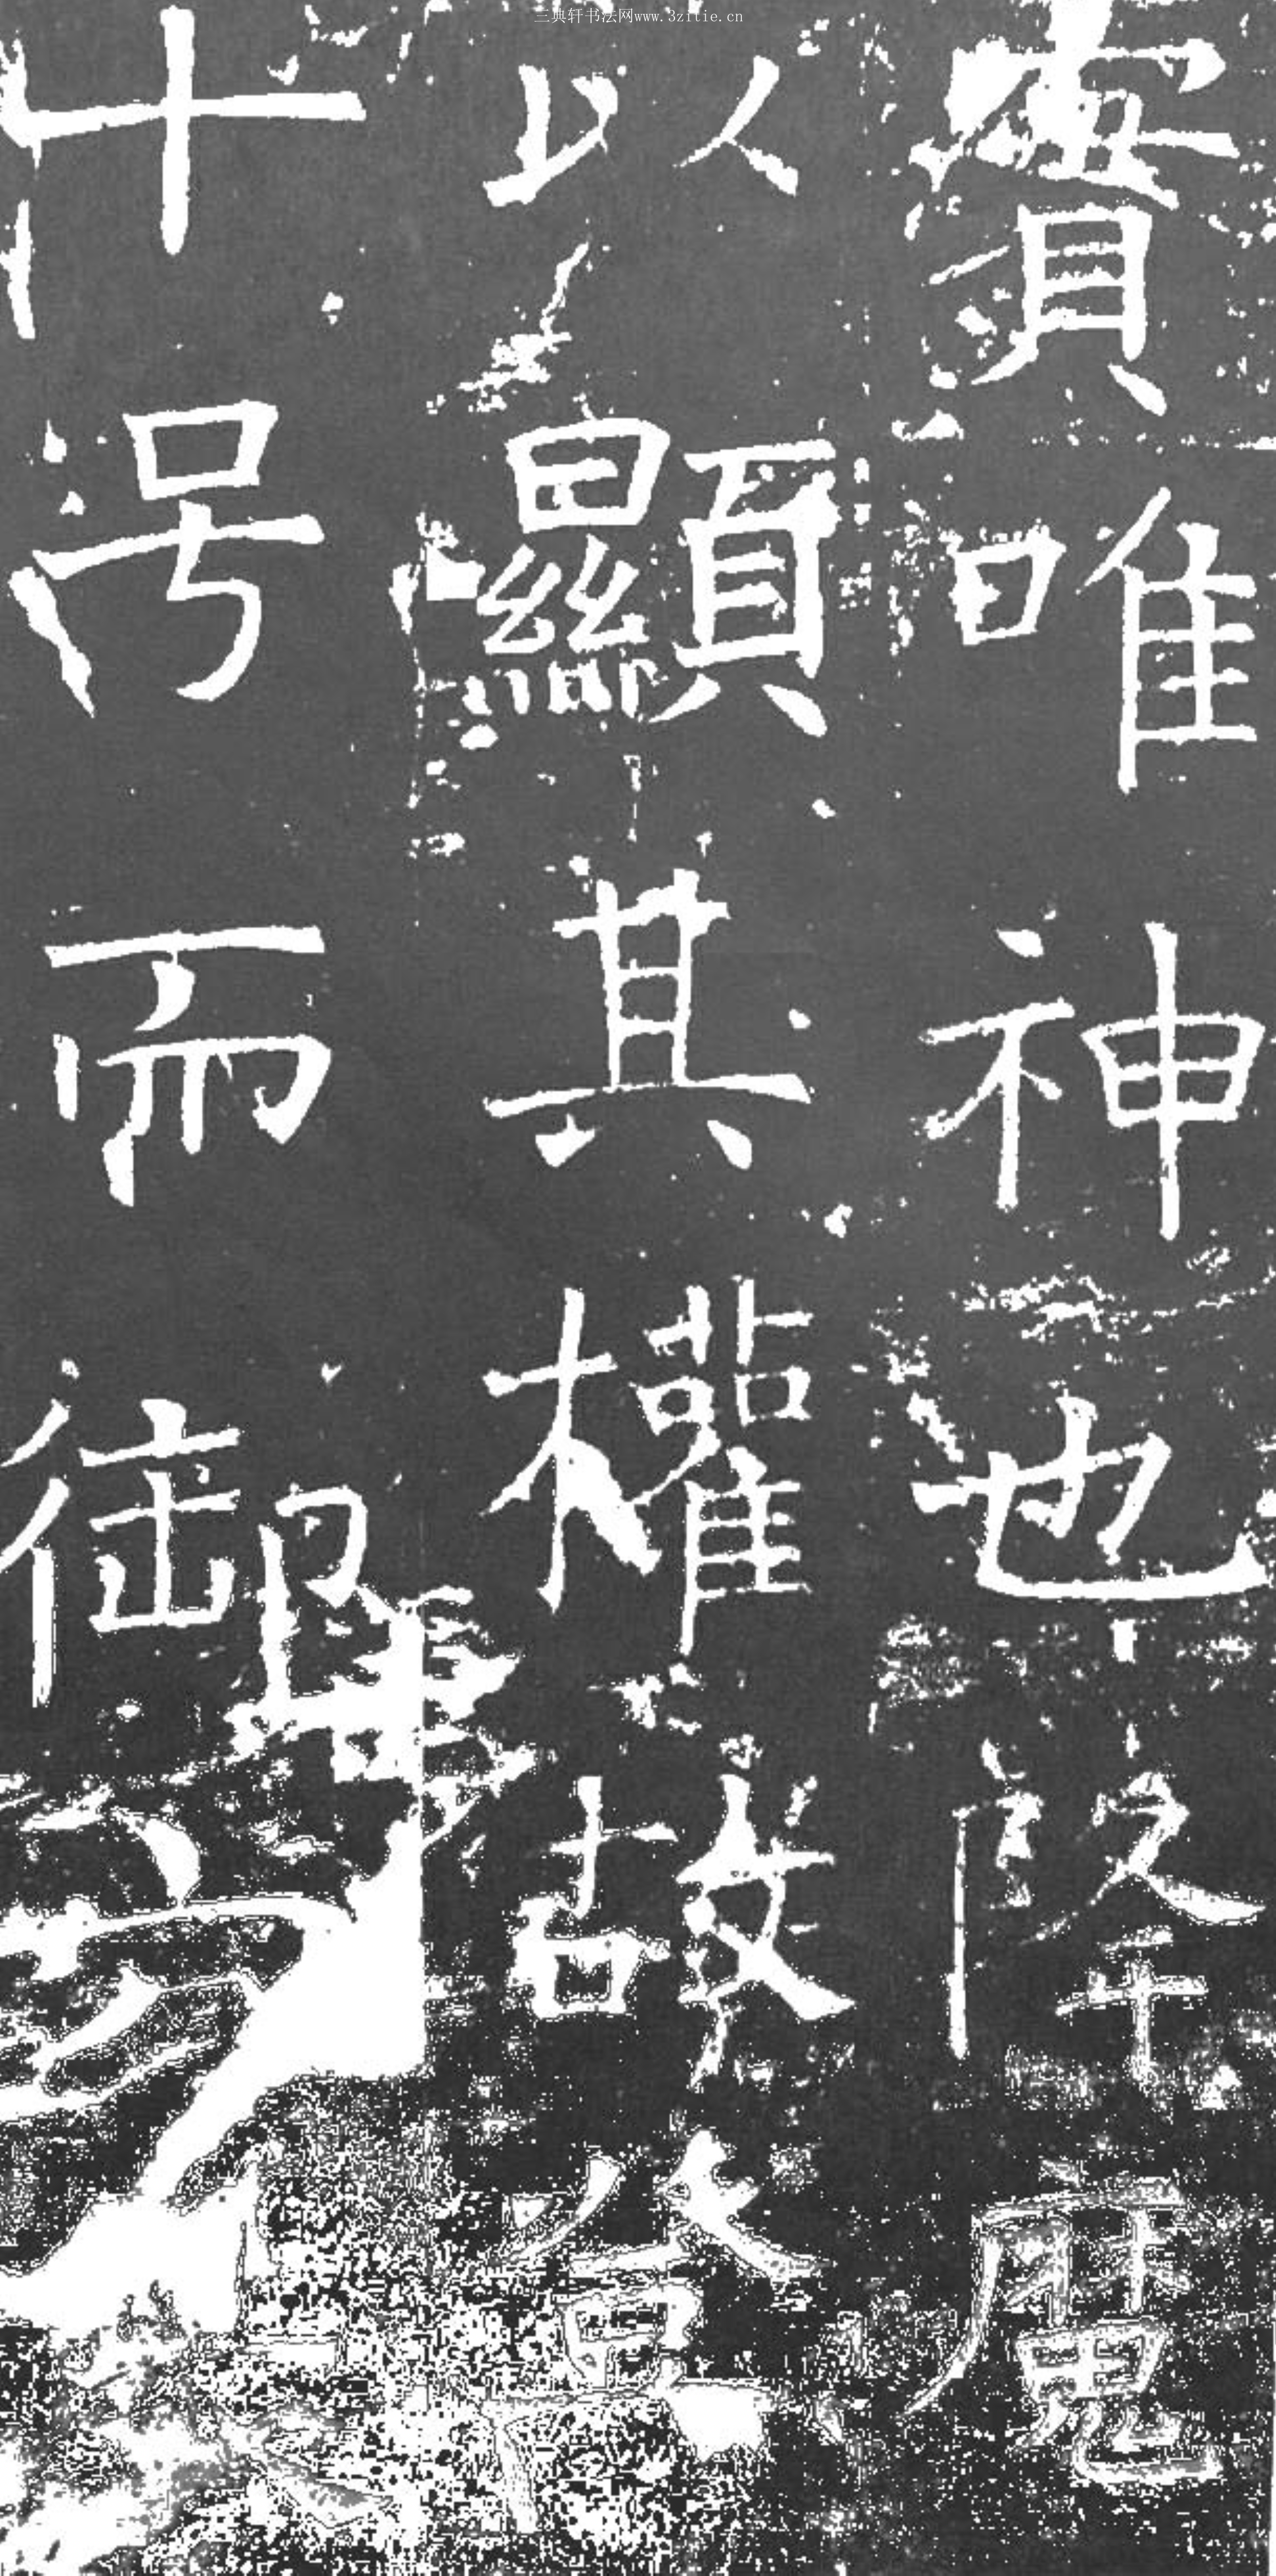 三典轩书法网www.3zitie.cn
實唯神也降魔
以顯其權故
十号而御方